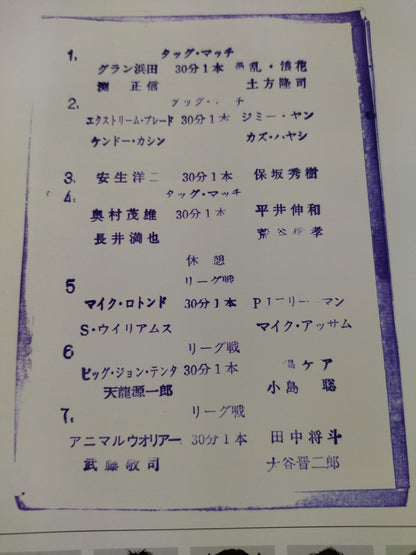 1. タッグ・マッチ
グラン浜田 30分1本 愚乱・浪花
渕 正信 土方隆司
2. タッグ・ チ
エクストリーム・ブレード 30分1本 ジミー・ヤン
ケンドー・カシン カズ・ハヤシ
3. 安生洋二 30分1本 保坂秀樹
4. タッグ・マッチ
奥村茂雄 30分1本 平井伸和
長井満也 荒谷 孝
休憩
5 リーグ戦
マイク・ロトンド 30分1本 マン
S・ウイリアムス マイク・アッサム
6 リーグ戦
ビッグ・ジョン・テンタ 30分1本 ケア
天龍源一郎 小島 聡
7. リーグ戦
アニマルウオリアー 30分1本 田中将斗
武藤敬司 大谷晋二郎